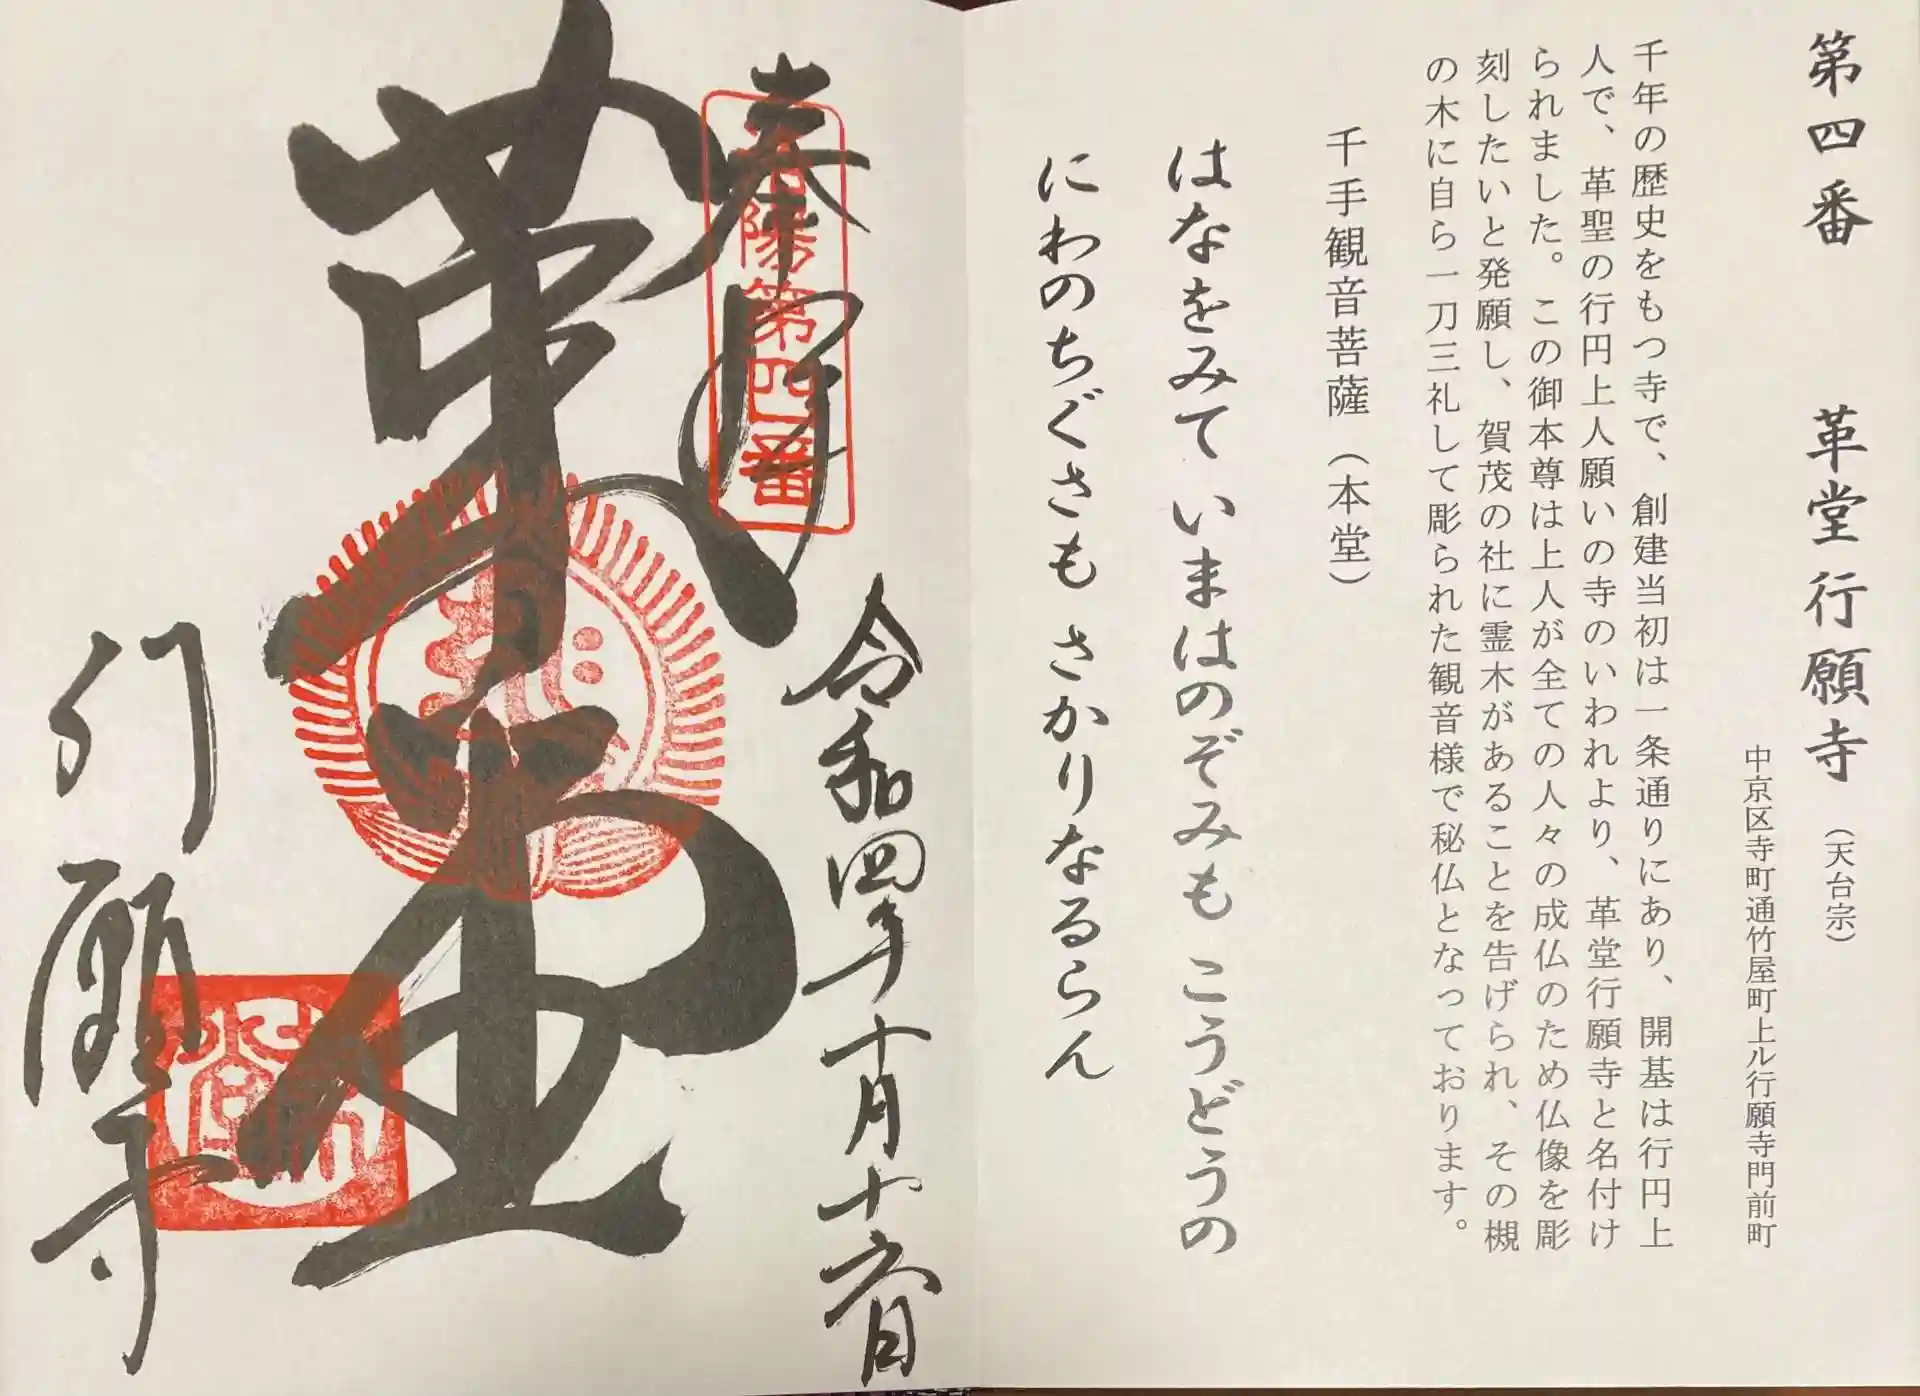 第四番 革堂行願寺（天台宗）
中京区寺町通竹屋町上ル行願寺門前町
千年の歴史をもつ寺で、創建当初は一条通りにあり、開基は行円上
人で、革聖の行円上人願いの寺のいわれより、革堂行願寺と名付け
られました。この御本尊は上人が全ての人々の成仏のため仏像を彫
刻したいと発願し、賀茂の社に霊木があることを告げられ、その槻
の木に自ら一刀三礼して彫られた観音様で秘仏となっております。
千手観音菩薩（本堂）
はなをみて いまはのぞみも こうどうの
にわのちぐさも さかりなるらん
奉拝
洛陽第四番
令和四年十月十六日
革堂
行願寺